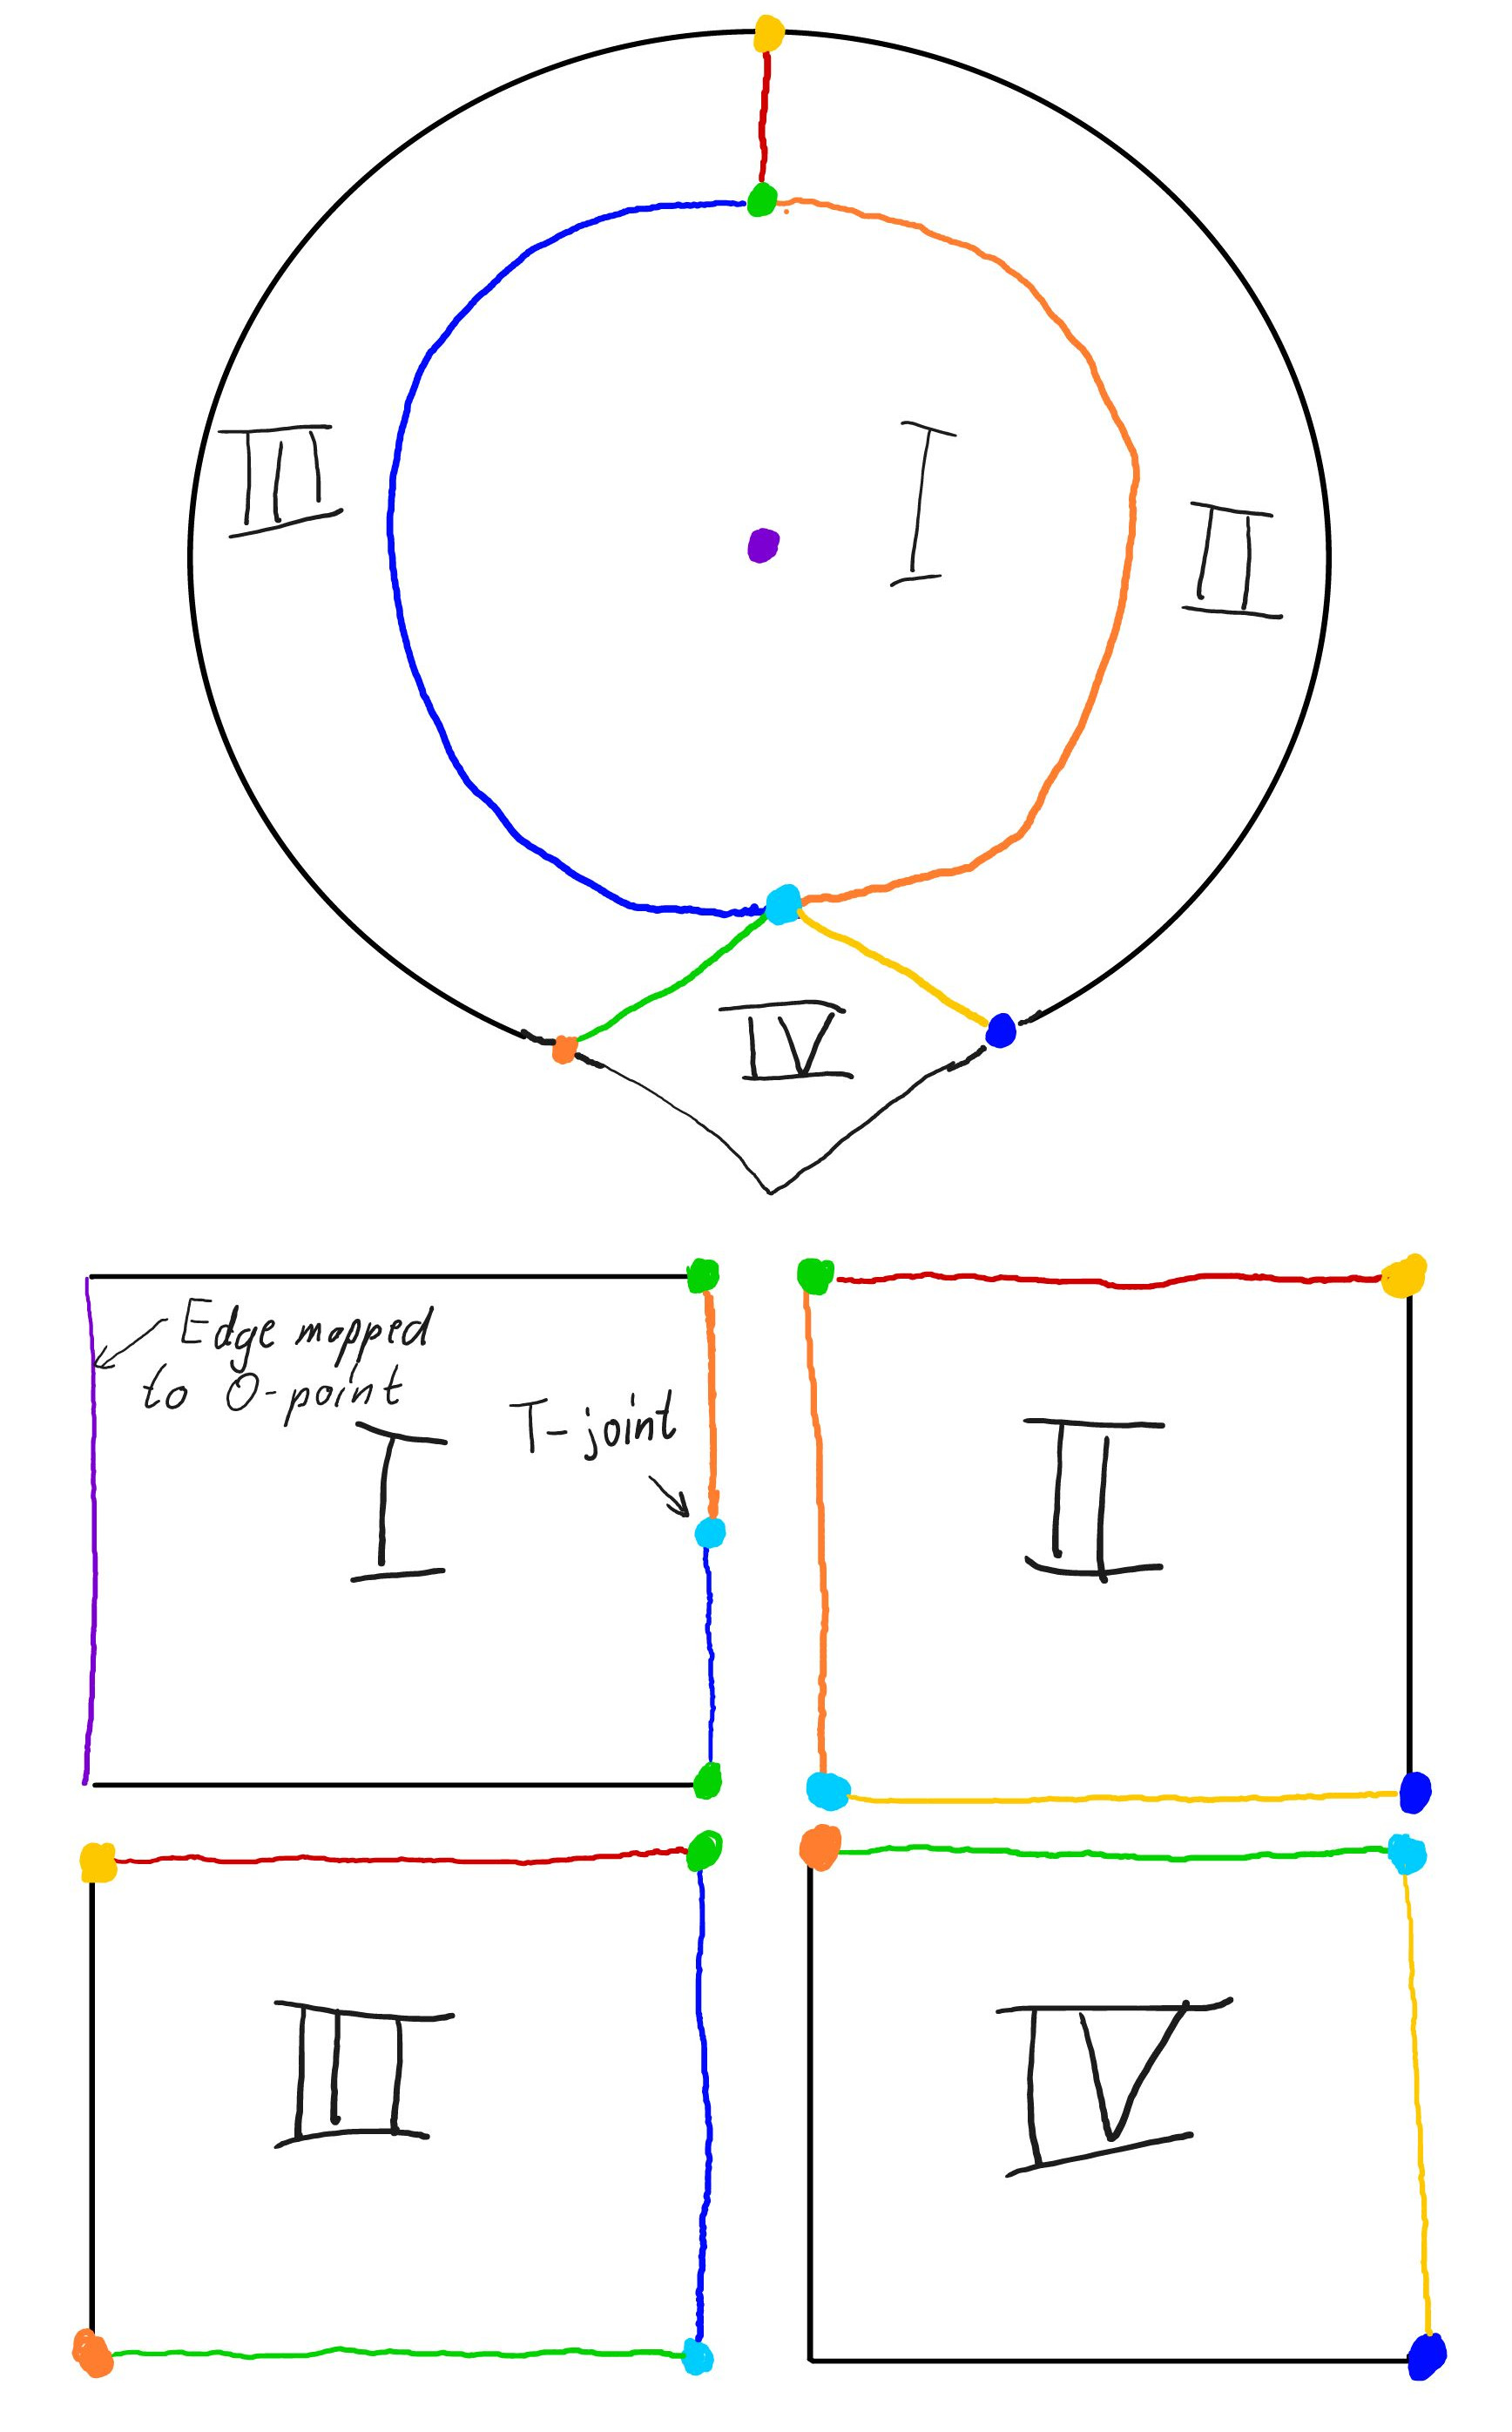 III
I
II
IV
Edge mapped
to O-point
T-joint
I
II
III
IV